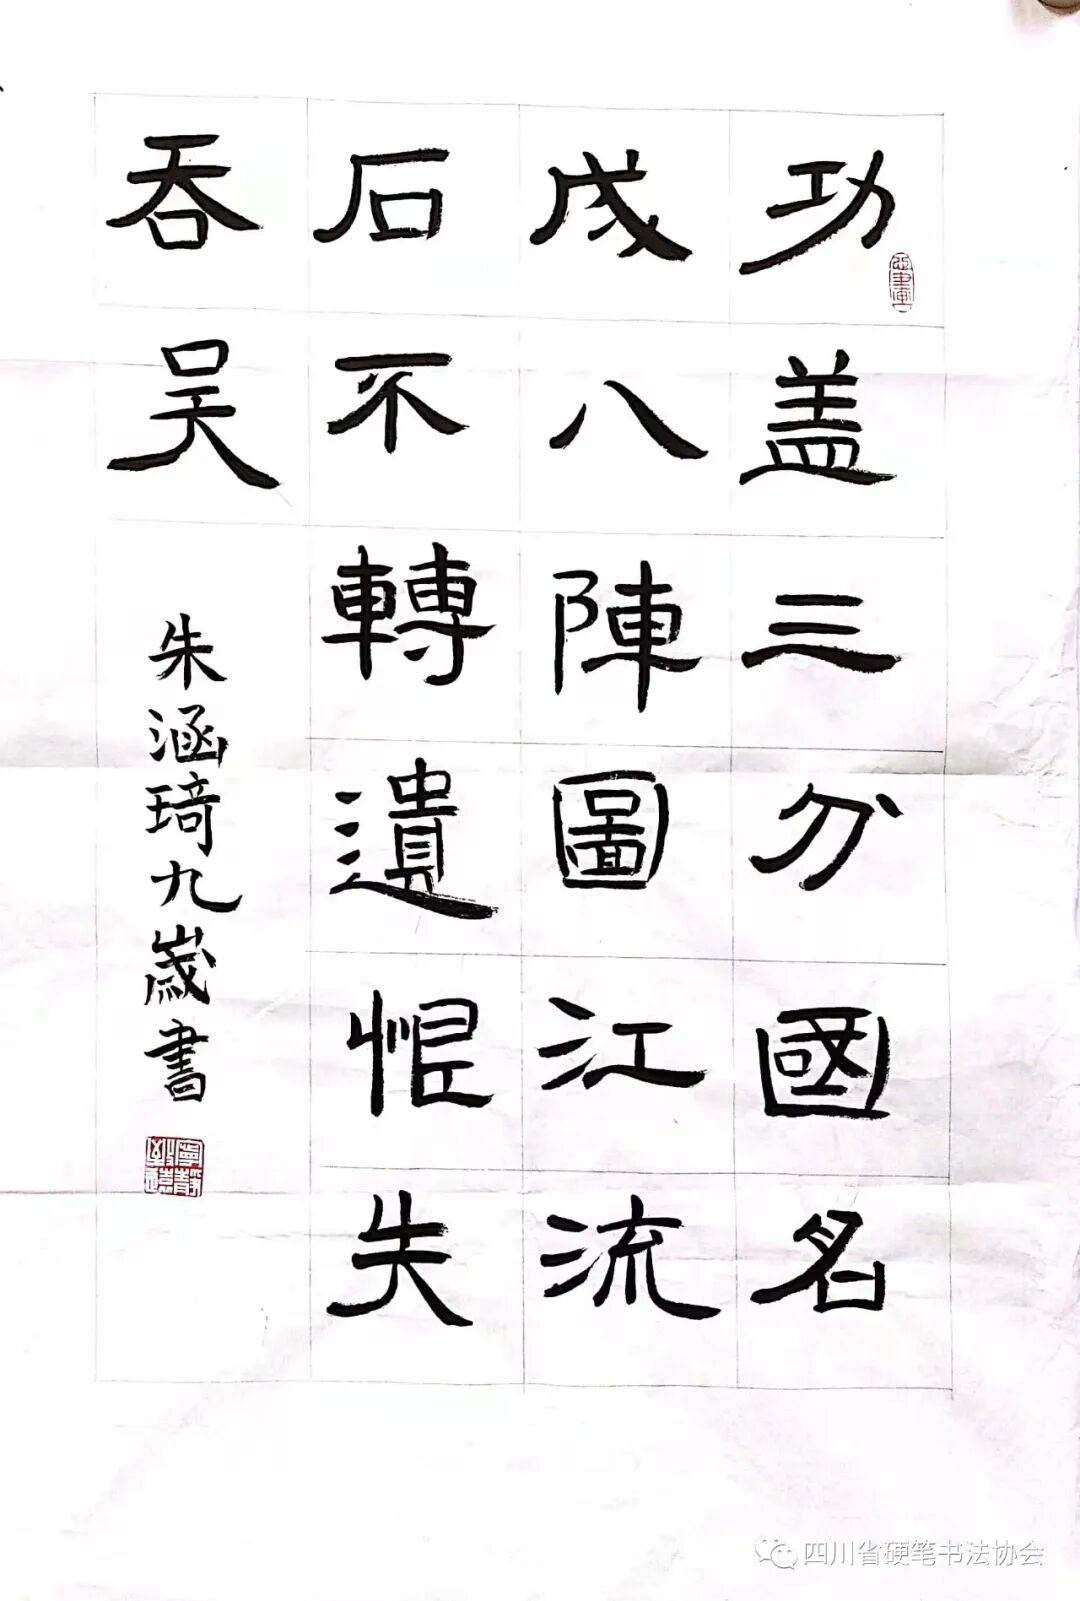 功盖三分國名
成八陣圖江流
石不轉遺恨失
吞吴
朱涵琦九歲書
四川省硬笔书法协会